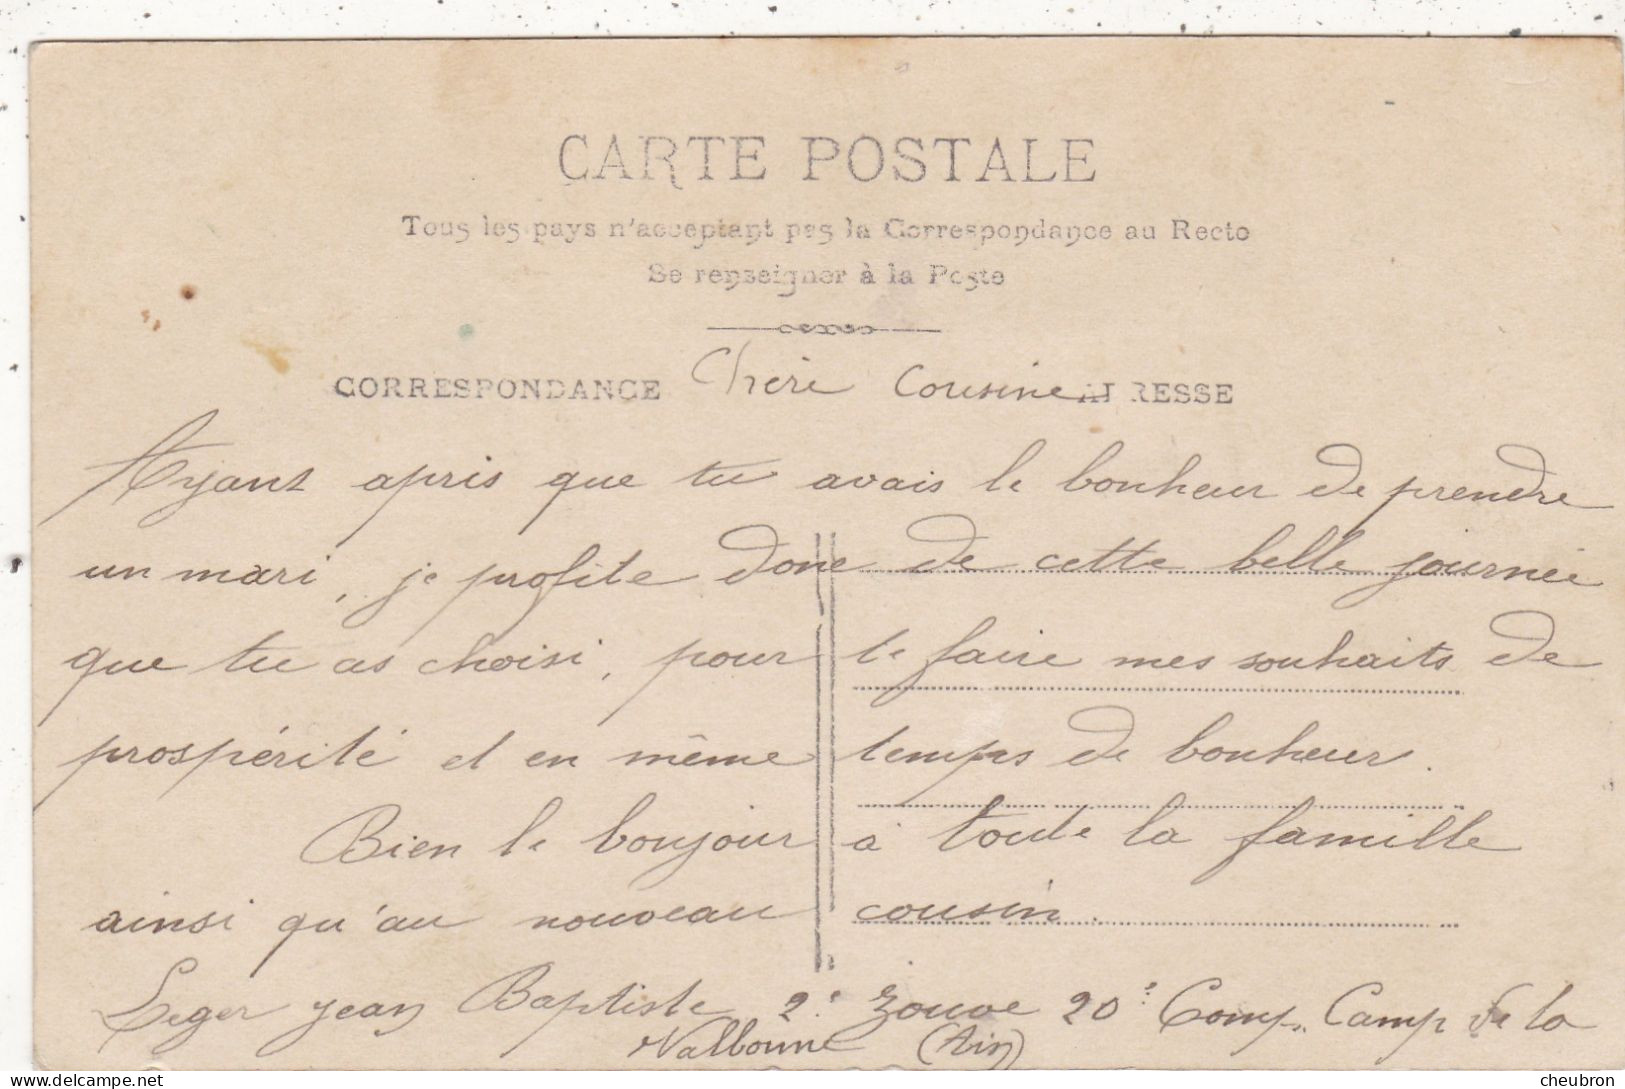 CARTE POSTALE
Tous les pays n'acceptant pas la Correspondance au Recto
Se renseigner à la Poste
CORRESPONDANCE Chère Cousine ADRESSE
Ayant apris que tu avais le bonheur de prendre
un mari, je profite donc de cette belle journée
que tu as choisi, pour te faire mes souhaits de
prospérité et en même temps de bonheur.
Bien le bonjour à toute la famille
ainsi qu'au nouveau cousin.
Leger Jean Baptiste 2e Zouve 20e Comp. Camp de la
Valbonne (Ain)
delcampe.net
cheubron